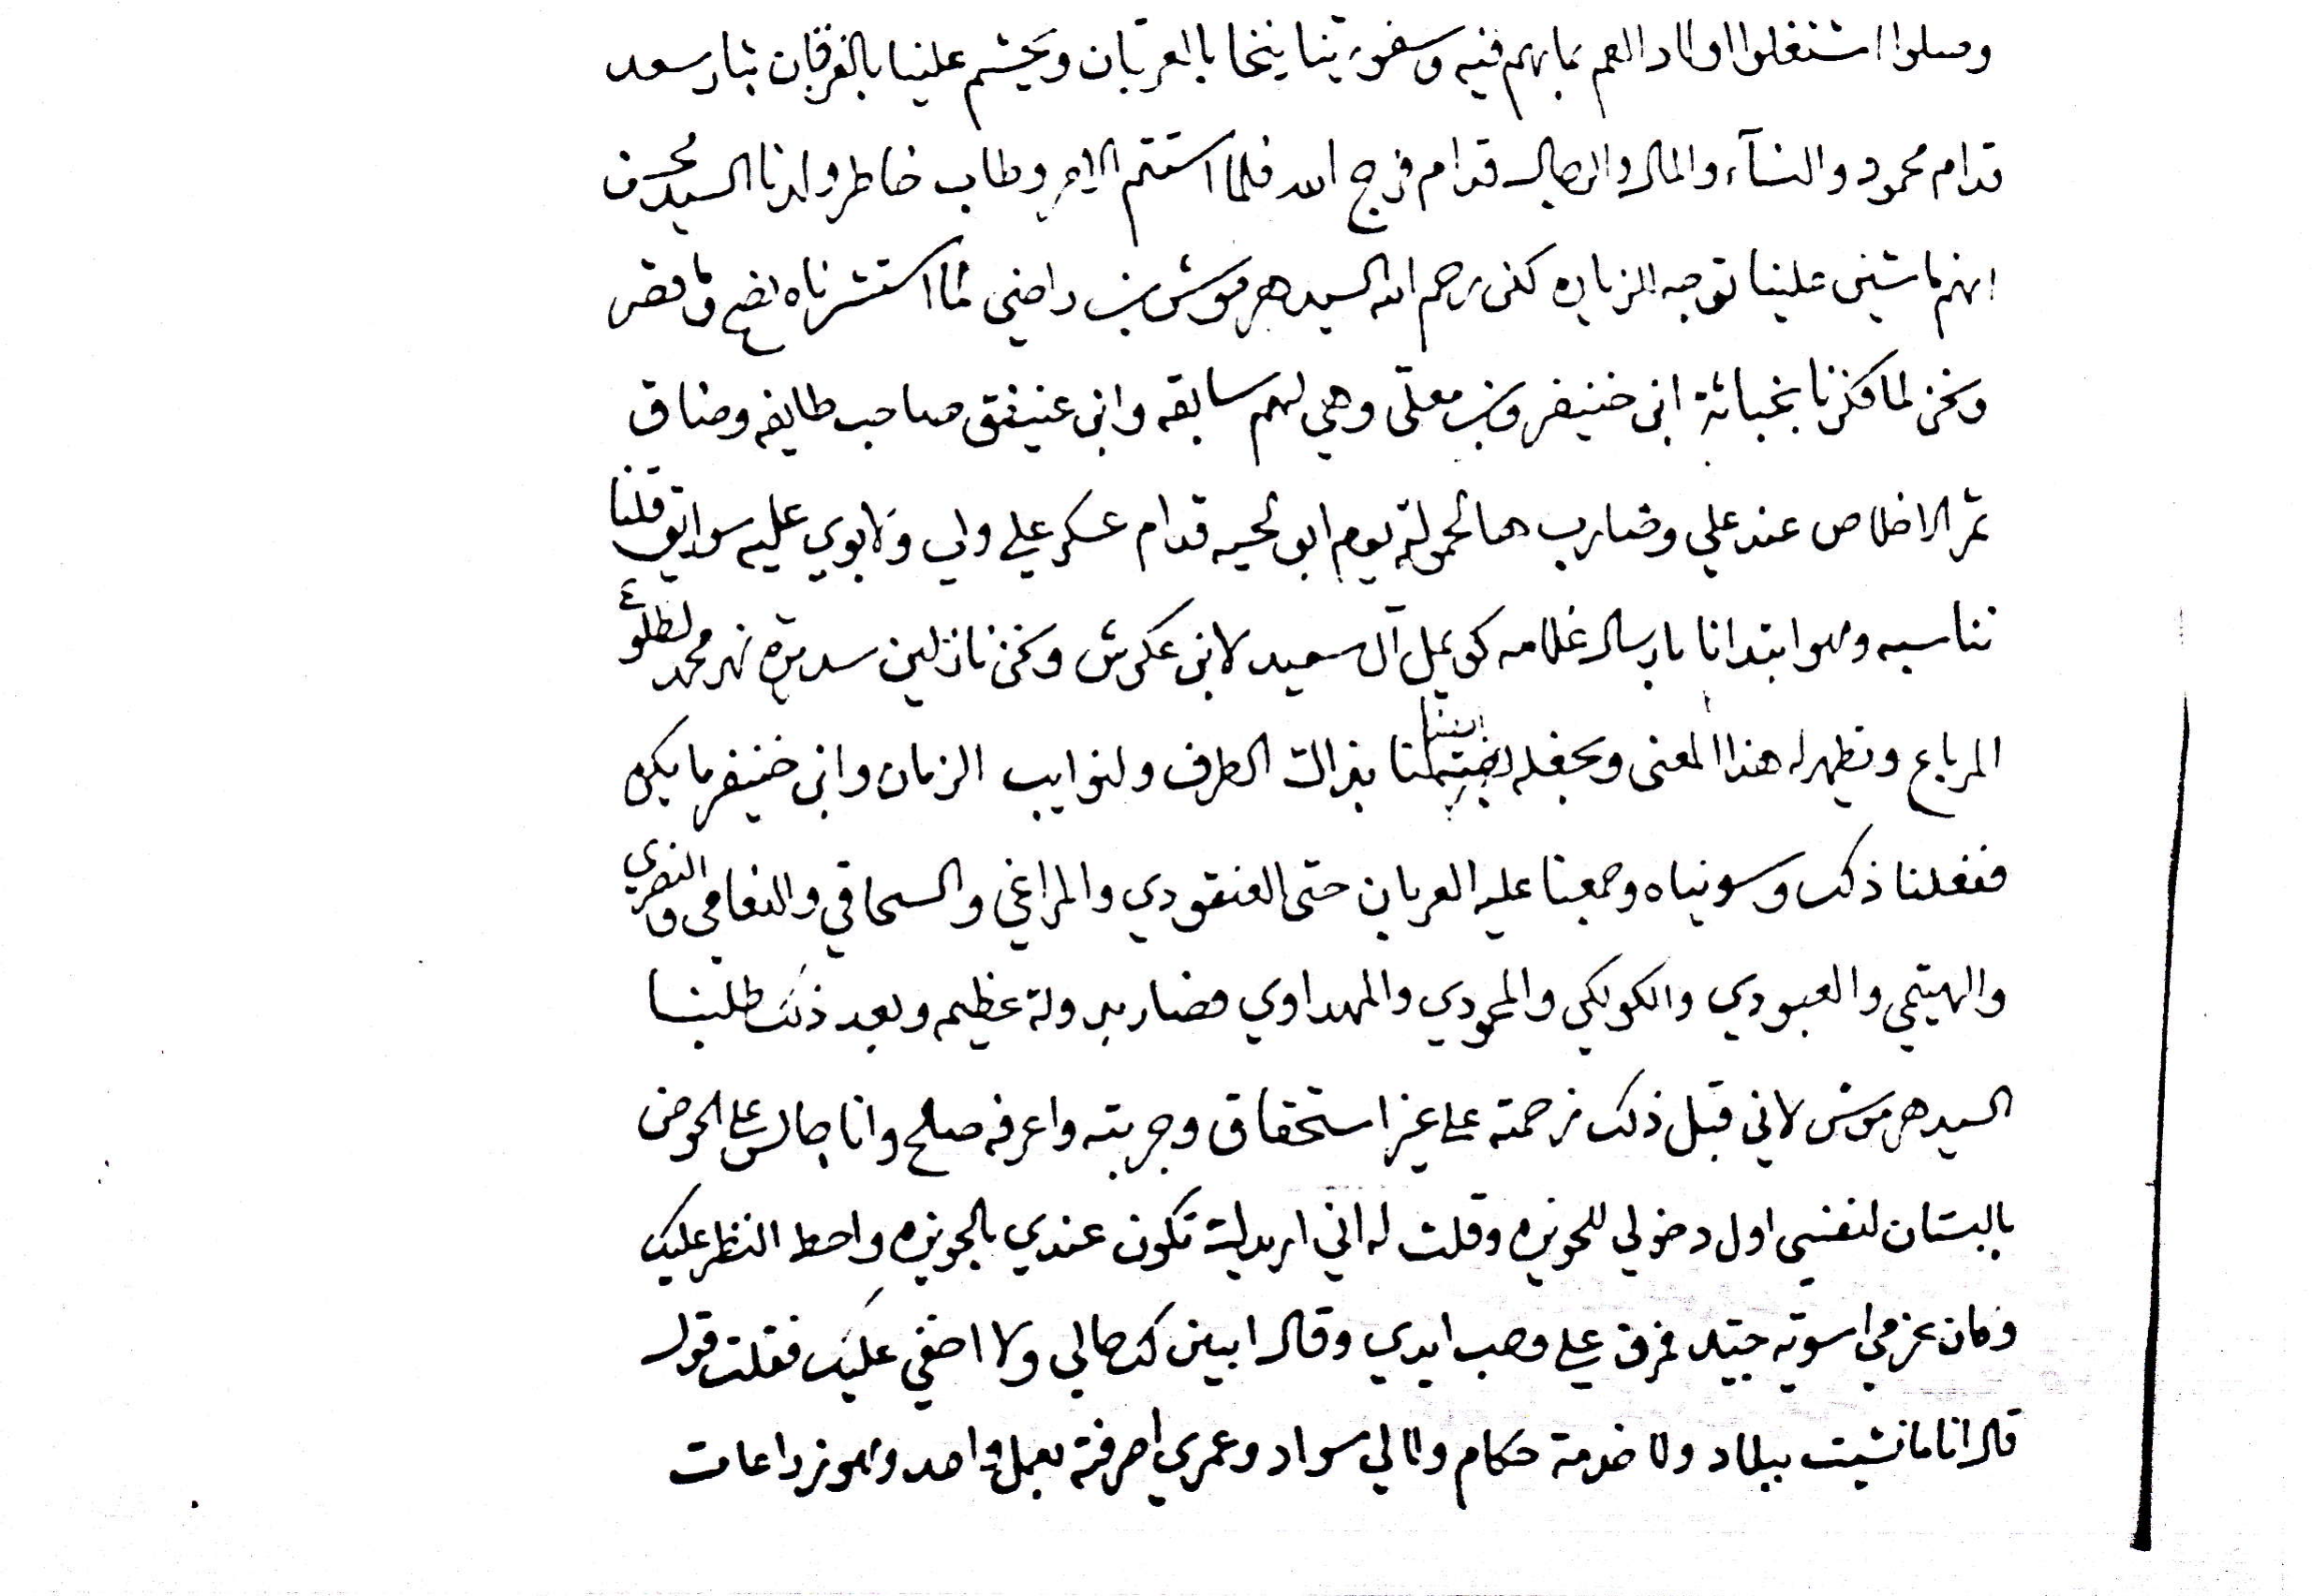 وصلوا اشتغلوا اولاد العم بما بهم فيه وسفويتنا ينخا بالعربان ويحشم علينا بالغرقان بثار سعد
قدام محمود والنساء والمال والرجال قدام فرج الله فلما استتم الامر وطاب خاطر ولدنا السيد محسن
انهزم ماشيني علينا توجه الزياره كفى رحم الله السيد هرموش بن راضي لما استشرناه نصح وما قصر
ونحن لما فكرنا بخباثة ابن خنيفر وبن معلّى وهي لهم سابقه وابن عنيفق صاحب طايفه وضاق
تمر الاخلاص عند علي وضارب هالحموله يوم ابو لحيه قدام عسكر علي ولي ولابوي عليه سوابق قلنا
نناسبه وهو ابتدانا بارسال غلامه كويمل آل سعيد لابن عكرش ونحن نازلين سديرة نهر محمد لطلوع
المرباع ونظهر له هذا المعنى ونجعله لنا بذاك الطرف ولنوايب الزمان وابن خنيفر ما يكره
ففعلنا ذلك وسويناه وجمعنا عليه العربان حتى العنقودي والمراغي والسحاقي والنعامي والنصري
والهيتمي والعبودي والكولكي والمحمودي والمهداوي فصار بدولة عظيمه وبعد ذلك طلبنا
السيد هرموش لاني قبل ذلك زحمته على غير استحقاق وجربته واعرفه صلح وانا جالس على الحوض
بالبستان لنفسي اول دخولي للحويزه وقلت له اني اريدك تكون عندي بالحويزه واحط النظر عليك
وكان عزمي اسويه جتيل فمرق علي وصب ايدي وقال ابين لك حالي ولا اخفي عليك فقلت قول
قال انا ما نشيت ببلاد ولا خدمة حكام ولا لي سواد وعمري اصرفته بعمل واحد وهو زراعات